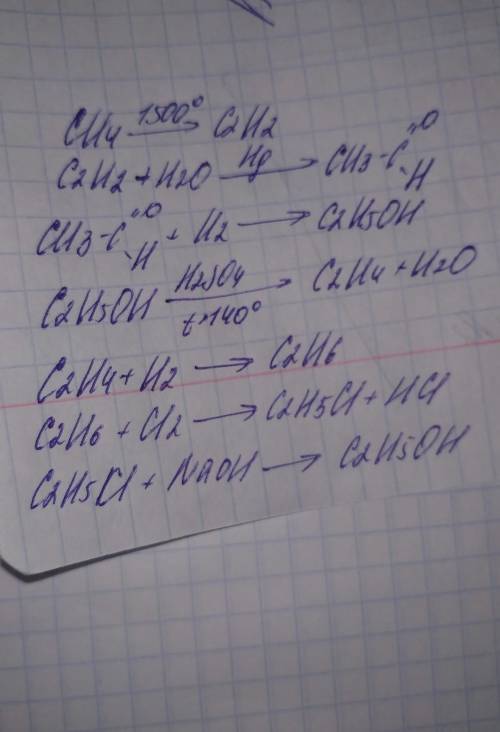 CH4 1500° → C2H2
C2H2 + H2O Hg → CH3-C=O -H
CH3-C=O -H + H2 → C2H5OH
C2H5OH H2SO4 t>140° → C2H4 + H2O
C2H4 + H2 → C2H6
C2H6 + Cl2 → C2H5Cl + HCl
C2H5Cl + NaOH → C2H5OH